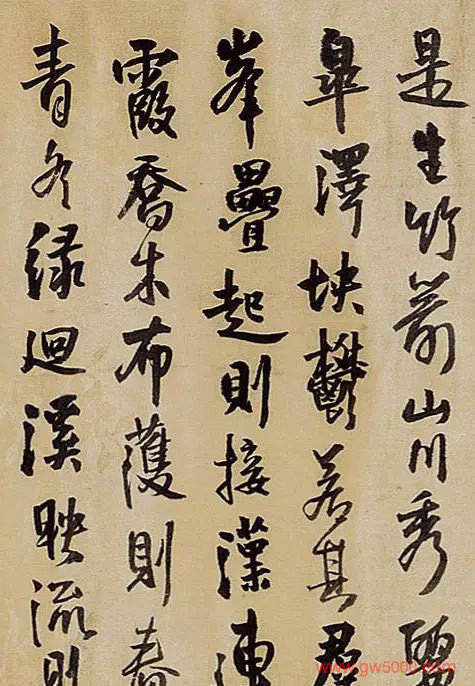 是生竹箭山川秀
皐澤坱鬱若其羣
峯疊起則接漢連
霞喬木布濩則春
青冬綠迴溪映流則
www.gw5000.com